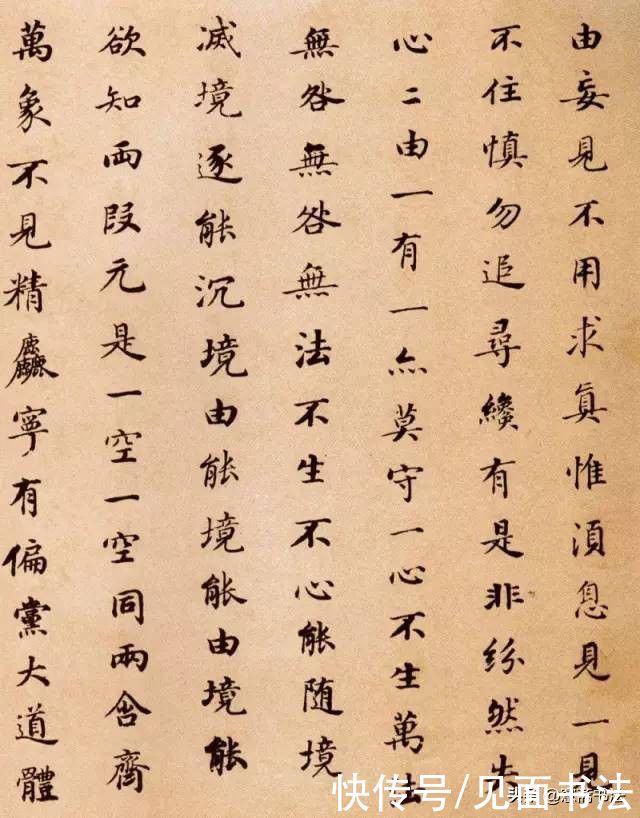 由妄見不用求眞惟湏息見一見
不住慎勿追尋纔有是非紛然失
心二由一有一亦莫守一心不生萬法
無咎無咎無法不生不心能随境
滅境逐能沉境由能境能由境能
欲知兩段元是一空一空同兩含齊
萬象不見精麤寧有偏黨大道體
快传号/见面书法